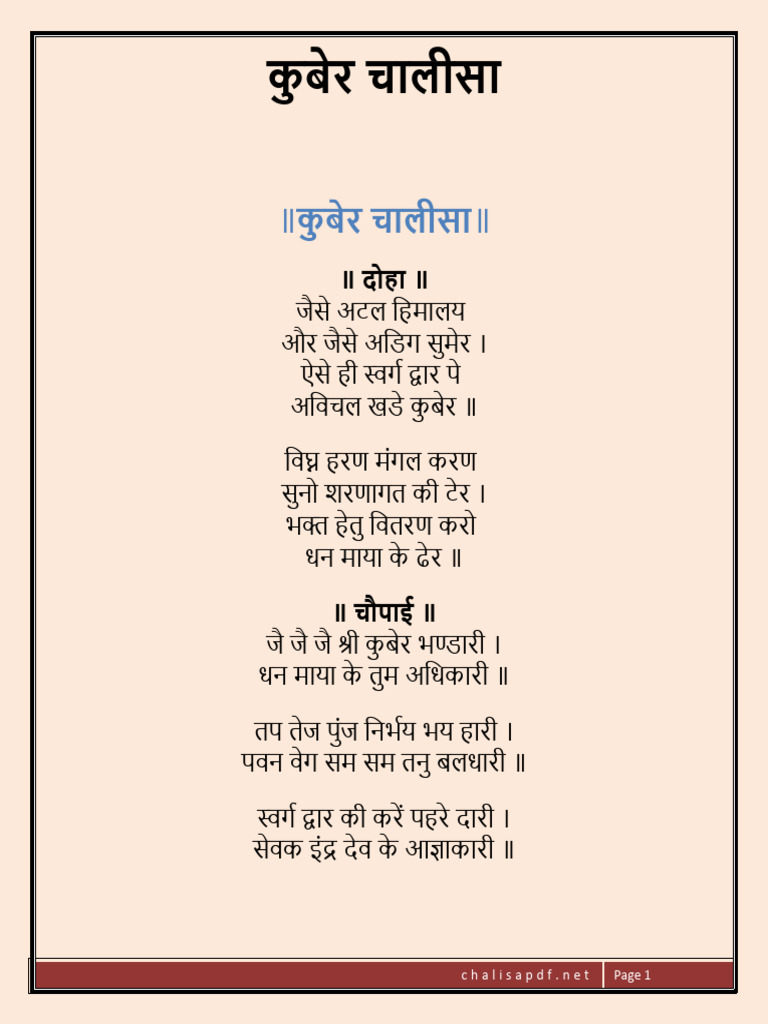 कुबेर चालीसा
॥कुबेर चालीसा॥
॥ दोहा ॥
जैसे अटल हिमालय
और जैसे अडिग सुमेर ।
ऐसे ही स्वर्ग द्वार पे
अविचल खडे कुबेर ॥
विघ्न हरण मंगल करण
सुनो शरणागत की टेर ।
भक्त हेतु वितरण करो
धन माया के ढेर ॥
॥ चौपाई ॥
जै जै जै श्री कुबेर भण्डारी ।
धन माया के तुम अधिकारी ॥
तप तेज पुंज निर्भय भय हारी ।
पवन वेग सम सम तनु बलधारी ॥
स्वर्ग द्वार की करें पहरे दारी ।
सेवक इंद्र देव के आज्ञाकारी ॥
chalisapdf.net Page 1